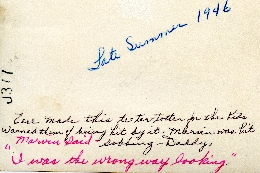 Late Summer 1946
J377
Carr made this teeter totter for the kids
warned them of being hit by it. Marvin was hit
"Marvin said sobbing - Daddy,
"I was the wrong way looking."